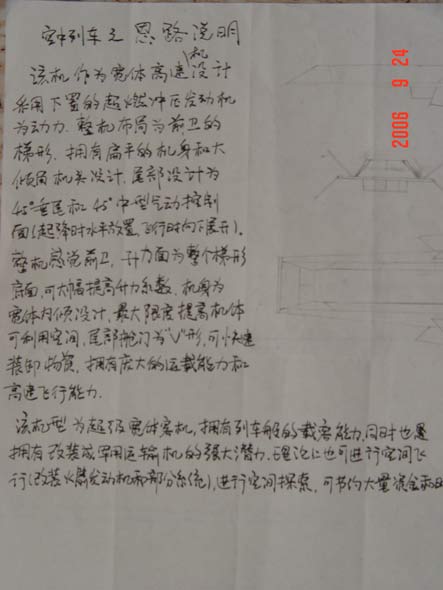 空中列车之思路说明
该机作为宽体高速机设计
采用下置的超燃冲压发动机
为动力.整机布局为前卫的
梯形.拥有扁平的机身和大
倾角机头设计.尾部设计为
45°垂尾和45°中型气动控制
面(起降时水平放置,飞行时向下展开).
整机感觉前卫,升力面为整个梯形
底面,可大幅提高升力系数.机身为
宽体内倾设计,最大限度提高机体
可利用空间,尾部舱门为"V"形,可快速
装卸物资,拥有庞大的运载能力和
高速飞行能力.
该机型为超级宽体客机,拥有列车般的载客能力.同时也是
拥有改装成军用运输机的强大潜力.理论上也可进行空间飞
行(改装火箭发动机和部分系统),进行空间探索,可节约大量资金和
2006 9 24